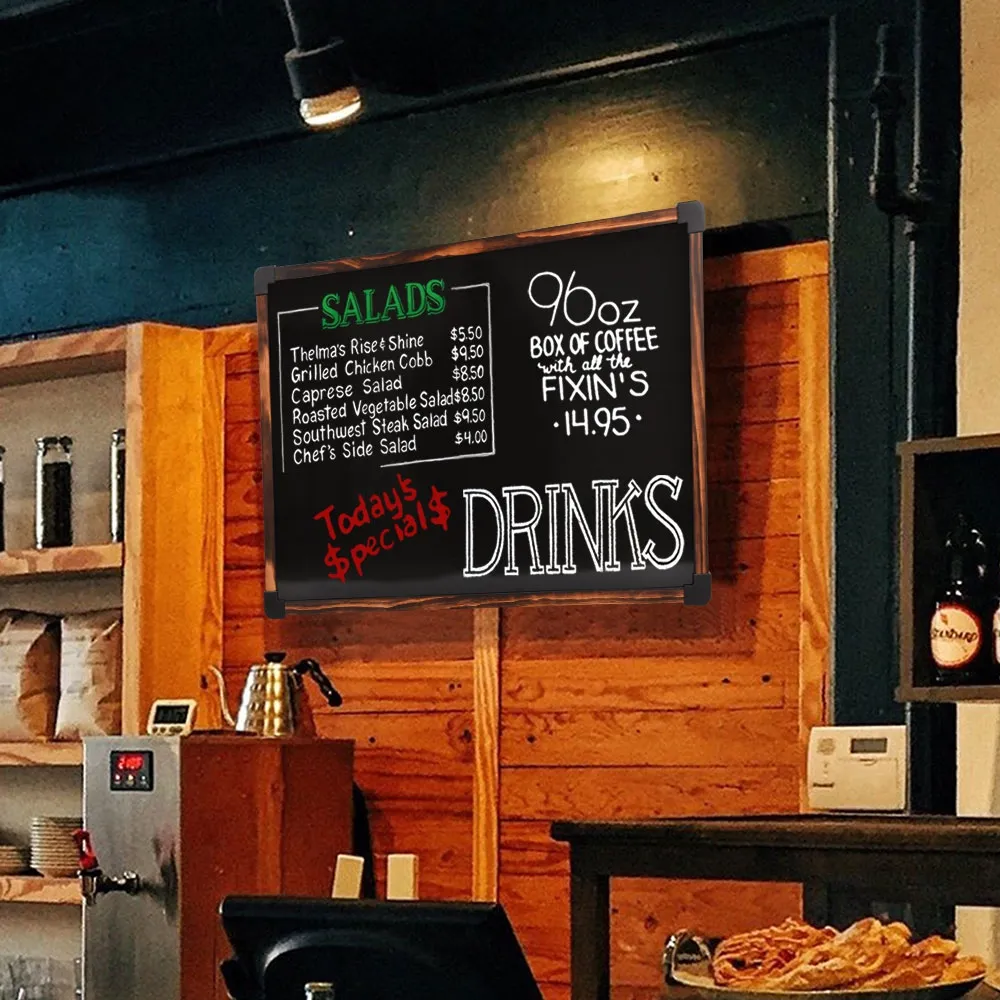 SALADS
Thelma's Rise & Shine $5.50
Grilled Chicken Cobb $9.50
Caprese Salad $8.50
Roasted Vegetable Salad $8.50
Southwest Steak Salad $9.50
Chef's Side Salad $4.00
96oz
BOX OF COFFEE
with all the
FIXIN'S
·14.95·
Today's
$pecial$
DRINKS
STANDARD
210F